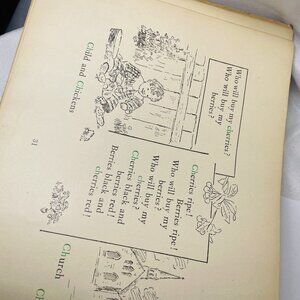 Who will buy my cherries?
Who will buy my
berries?
Child and Chickens
Cherries ripe!
Berries ripe!
Who will buy my
berries?
Who will buy my
cherries?
Cherries black and
berries red!
Berries black and
cherries red!
31
Church